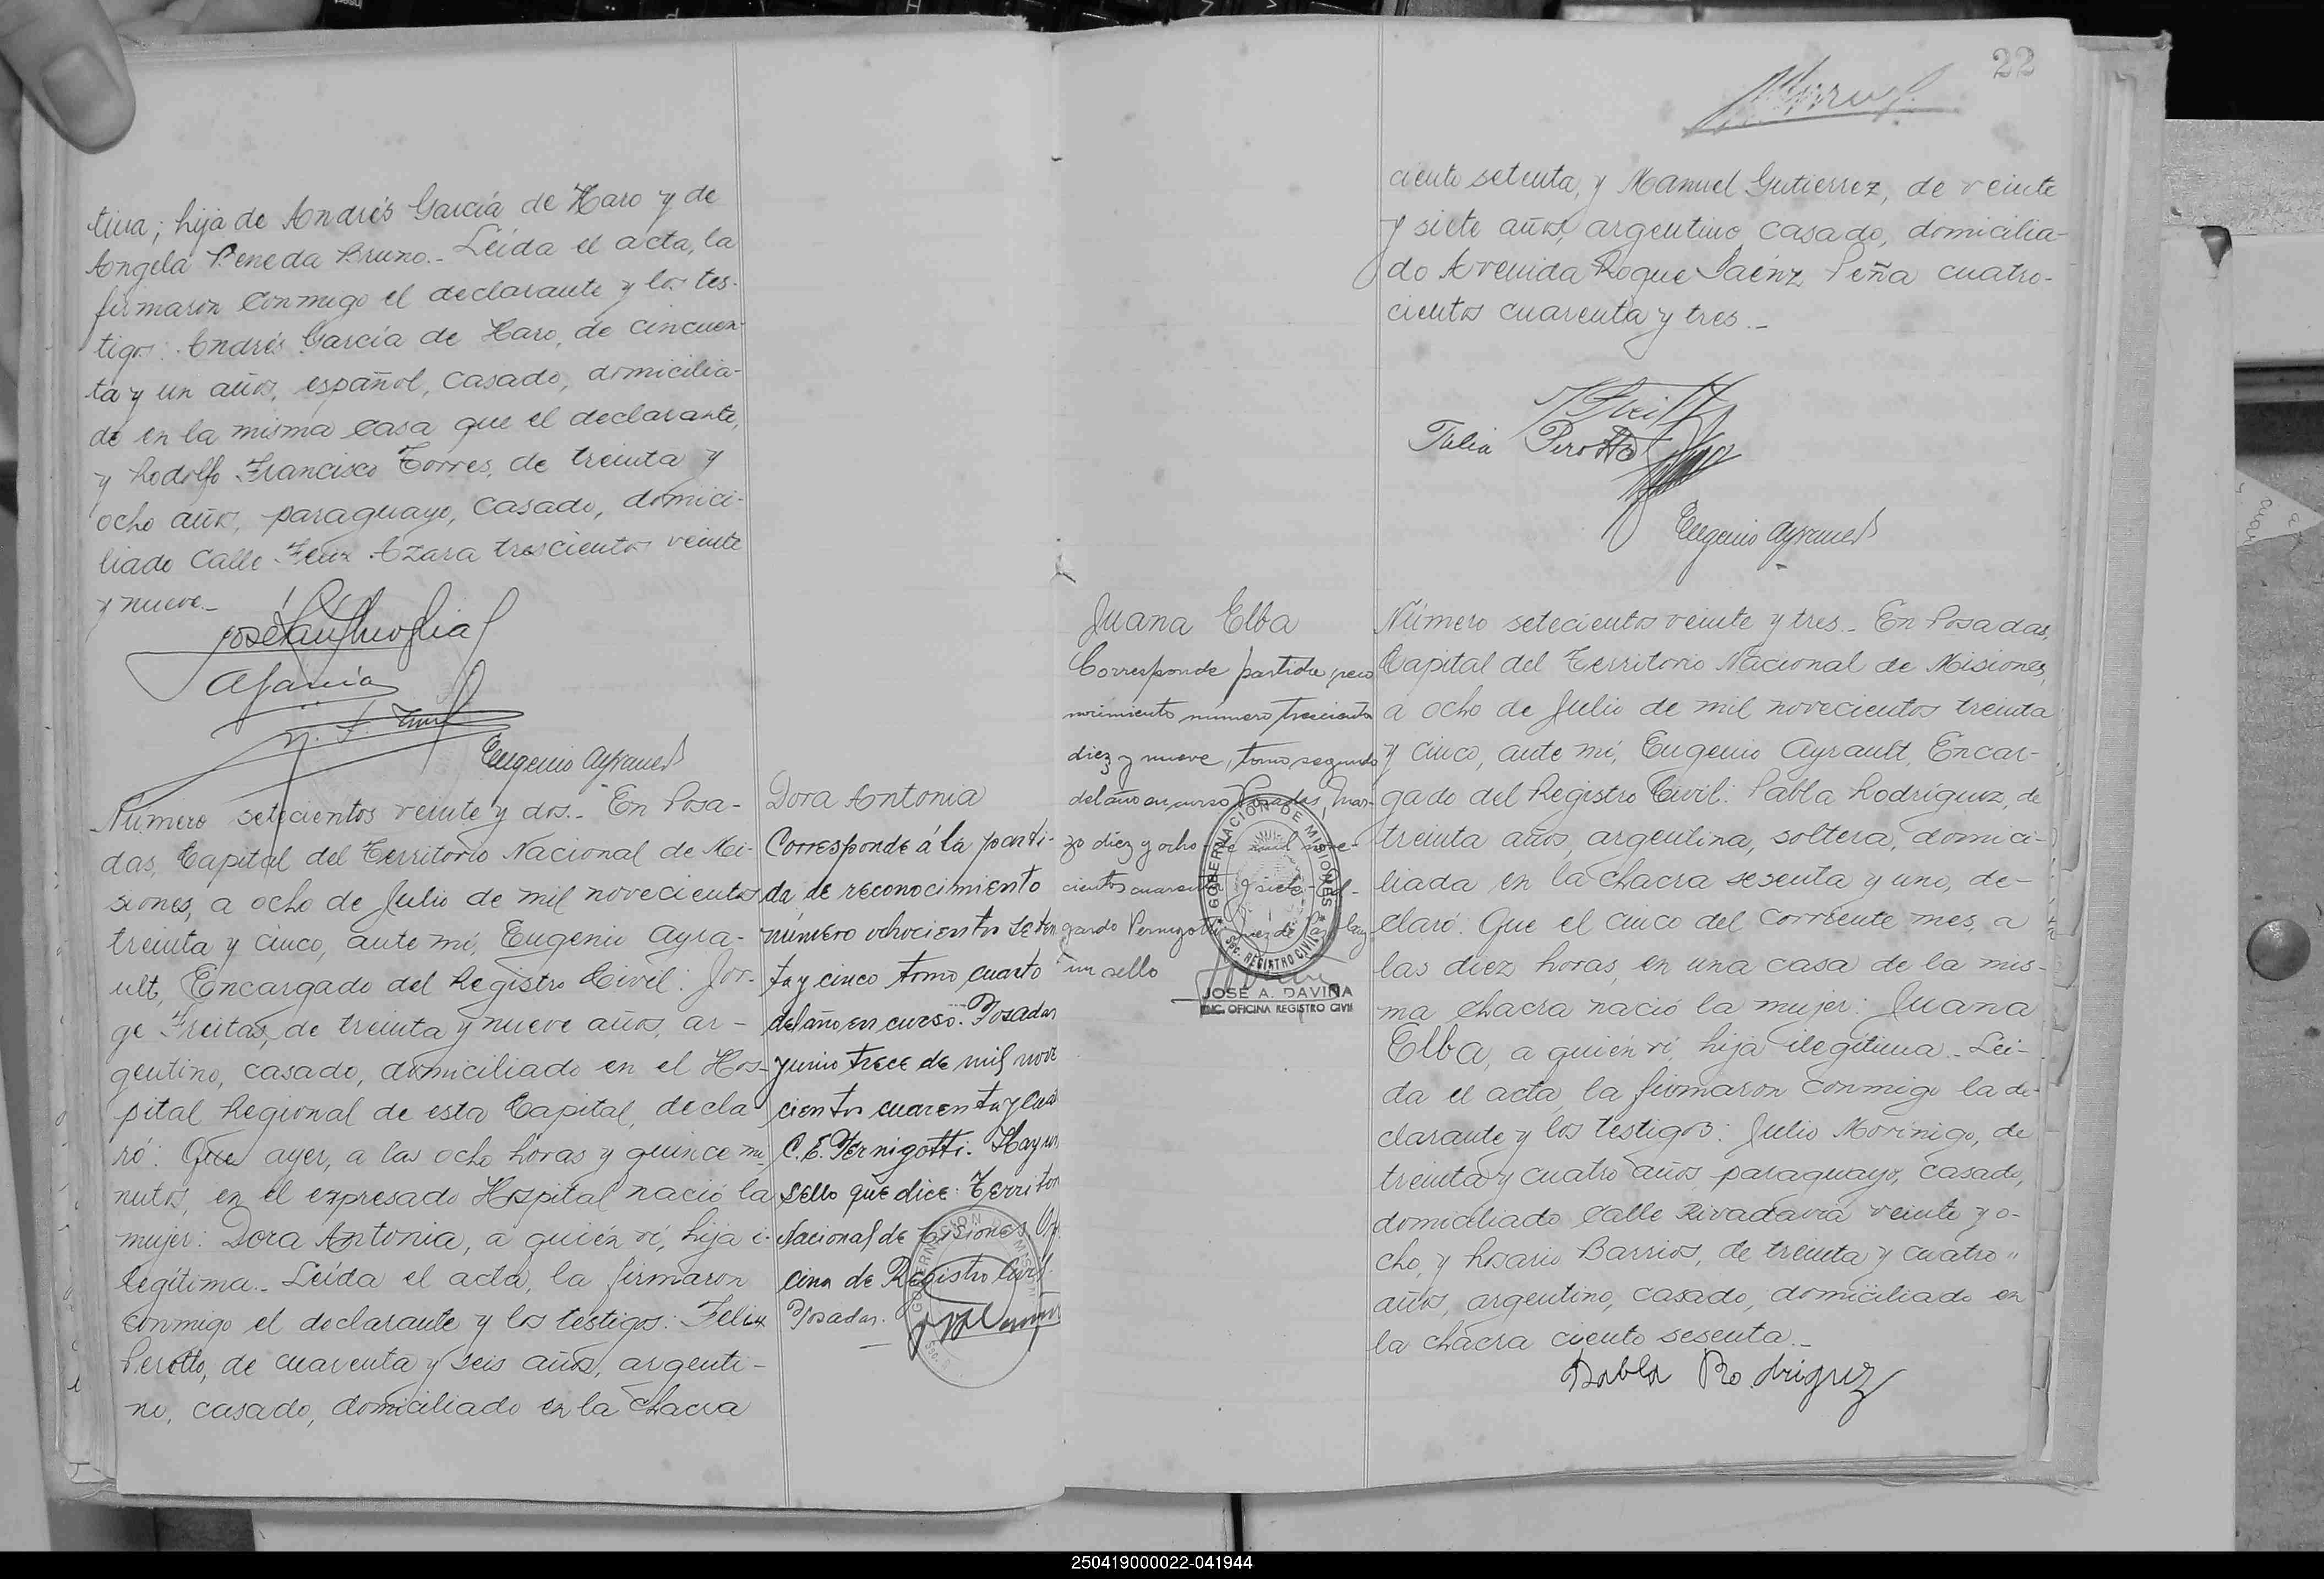 tima; hija de Andrés García de Haro y de
Angela Peneda Bruno.- Leída el acta, la
firmaron conmigo el declarante y los tes-
tigos: Andrés García de Haro, de cincuen-
ta y un años, español, casado, domicilia-
do en la misma casa que el declarante,
y Rodolfo Francisco Torres, de treinta y
ocho años, paraguayo, casado, domici-
liado Calle Felix Azara trescientos veinte
y nueve.-
AGarcía
Eugenio Ayrault
Número setecientos veinte y dos.- En Posa-
das, Capital del Territorio Nacional de Mi-
siones, a ocho de Julio de mil novecientos
treinta y cinco, ante mí, Eugenio Ayra-
ult, Encargado del Registro Civil: Jor-
ge Freitas, de treinta y nueve años, ar-
gentino, casado, domiciliado en el Hos-
pital Regional de esta Capital, decla
ró: Que ayer, a las ocho horas y quince mi-
nutos, en el expresado Hospital nació la
mujer: Dora Antonia, a quién ví, hija i-
legítima.- Leída el acta, la firmaron
conmigo el declarante y los testigos: Felix
Perotto, de cuarenta y seis años, argenti-
no, casado, domiciliado en la chacra
Dora Antonia
Corresponde á la parti-
da de reconocimiento
número ochocientos seten
ta y cinco tomo cuarto
del año en curso. Posadas
junio trece de mil nove
cientos cuarenta y cua
C. E. Pernigotti. Hay un
sello que dice: Territor
Nacional de Misiones Ofi
cina de Registro Civil.
Posadas.
22
ciento setenta, y Manuel Gutierrez, de veinte
y siete años, argentino casado, domicilia-
do Avenida Roque Saénz Peña cuatro-
cientos cuarenta y tres.-
Perotto
Eugenio Ayrault
Juana Elba
Corresponde partida reco
nocimiento número trescientos
diez y nueve, tomo segundo
del año en curso Posadas, Mar-
zo diez y ocho de mil nove-
cientos cuarenta y siete
gardo Pernigotti Juez de Paz Hay
un sello
GOBERNACION DE MISIONES
Sec. REGISTRO CIVIL
JOSE A. DAVIÑA
ENC. OFICINA REGISTRO CIVIL
Número setecientos veinte y tres.- En Posadas,
Capital del Territorio Nacional de Misiones,
a ocho de Julio de mil novecientos treinta
y cinco, ante mí, Eugenio Ayrault, Encar-
gado del Registro Civil: Pabla Rodríguez, de
treinta años, argentina, soltera, domici-
liada en la chacra sesenta y uno, de-
claró: Que el cinco del corriente mes, a
las diez horas, en una casa de la mis-
ma chacra nació la mujer: Juana
Elba, a quién ví, hija ilegítima.- Leí-
da el acta, la firmaron conmigo la de-
clarante y los testigos: Julio Morínigo, de
treinta y cuatro años, paraguayo, casado,
domiciliado Calle Rivadavia veinte y o-
cho, y Rosario Barrios, de treinta y cuatro "
años, argentino, casado, domiciliado en
la chacra ciento sesenta.-
Pabla Rodriguez
250419000022-041944